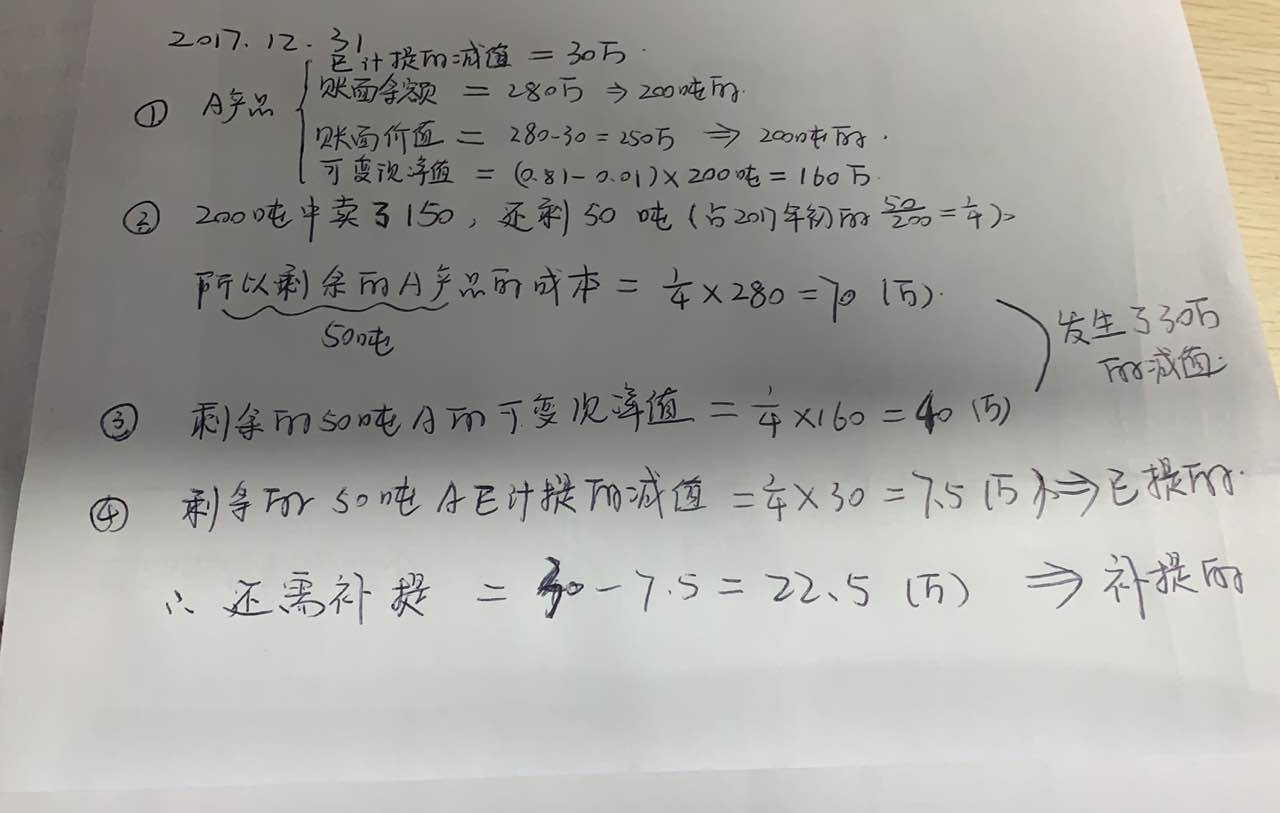 2017.12.31
已计提的减值 = 30万.
① A产品 账面余额 = 280万 ⇒ 200吨的.
账面价值 = 280-30 = 250万 ⇒ 200吨的.
可变现净值 = (0.81-0.01)×200吨 = 160万.
② 200吨中卖了150, 还剩50吨 (占2017年初的 50/200 = 1/4).
所以剩余的A产品的成本 = 1/4 × 280 = 70 (万).
50吨
发生了30万
的减值.
③ 剩余的50吨A的可变现净值 = 1/4 × 160 = 40 (万)
④ 剩余的50吨A已计提的减值 = 1/4 × 30 = 7.5 (万) ⇒ 已提的.
∴ 还需补提 = 30 - 7.5 = 22.5 (万) ⇒ 补提的